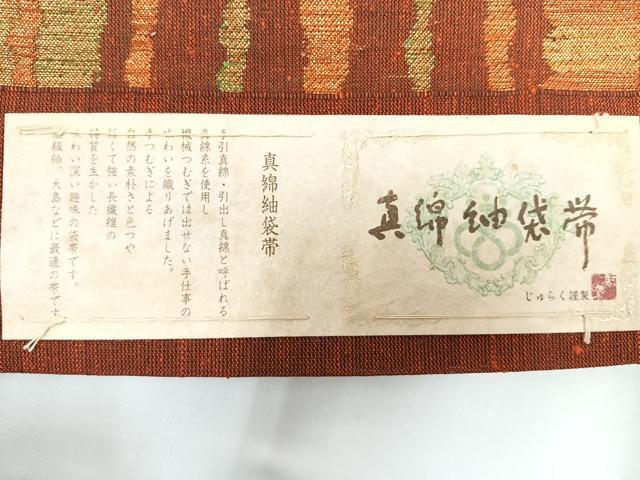 真綿紬袋帯
じゅらく謹製
真綿紬袋帯
手引真綿・引出し真綿と呼ばれる
真綿糸を使用し
機械つむぎでは出せない手仕事の
味わいを織りあげました。
手つむぎによる
自然の素朴さと色つや
軽くて強い長繊維の
特質を生かした
味わい深い趣味の袋帯です。
高級紬、大島などに最適の帯です。